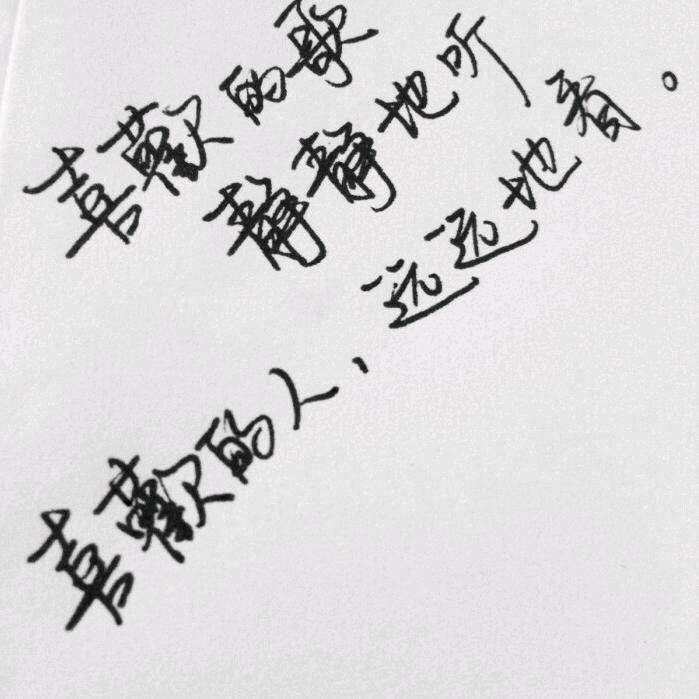 喜歡的歌
靜靜地听
喜歡的人、
远远地看。